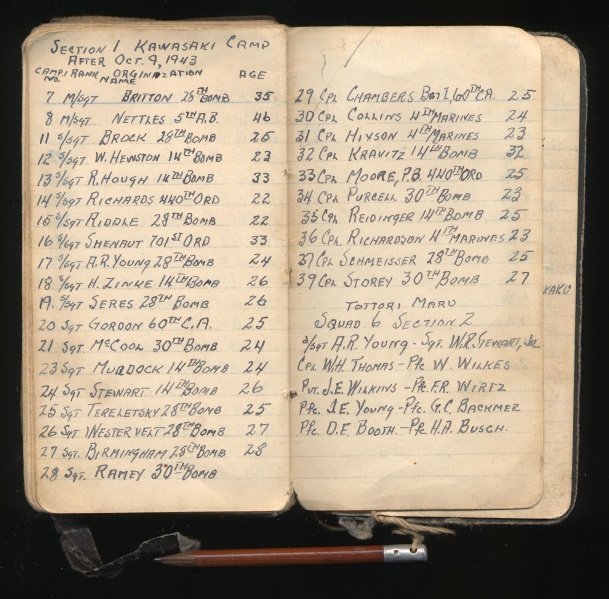 SECTION 1 KAWASAKI CAMP
AFTER OCT. 9, 1943
CAMP NO. RANK NAME ORGINIZATION AGE
7 M/SGT BRITTON 28TH BOMB 35
8 M/SGT NETTLES 5TH A.B. 46
11 S/SGT BROCK 28TH BOMB 25
12 S/SGT W. HEWSTON 14TH BOMB 23
13 S/SGT R. HOUGH 14TH BOMB 33
14 S/SGT RICHARDS 440TH ORD 22
15 S/SGT RIDDLE 28TH BOMB 22
16 S/SGT SHENAUT 701ST ORD 33
17 S/SGT A.R. YOUNG 28TH BOMB 24
18 S/SGT H. ZINKE 14TH BOMB 26
19 S/SGT SERES 28TH BOMB 26
20 SGT GORDON 60TH C.A. 25
21 SGT MCCOOL 30TH BOMB 24
23 SGT MURDOCK 14TH BOMB 24
24 SGT STEWART 14TH BOMB 26
25 SGT TERELETSKY 28TH BOMB 25
26 SGT WESTERVELT 28TH BOMB 27
27 SGT. BIRMINGHAM 28TH BOMB 28
28 SGT. RAMEY 30TH BOMB
29 CPL CHAMBERS BAT I, 60TH CA. 25
30 CPL COLLINS 4TH MARINES 24
31 CPL HIXSON 4TH MARINES 23
32 CPL KRAVITZ 14TH BOMB 32
33 CPL MOORE, P.B. 440TH ORD 25
34 CPL PURCELL 30TH BOMB 23
35 CPL REIDINGER 14TH BOMB 25
36 CPL RICHARDSON 4TH MARINES 23
37 CPL SCHMEISSER 28TH BOMB 25
39 CPL STOREY 30TH BOMB 27
TOTTORI MARU
SQUAD 6 SECTION 2
S/SGT A.R. YOUNG - SGT. W.R. STEWART, JR.
CPL W.H. THOMAS - PFC W. WILKES
PVT. J.E. WILKINS - PFC. F.R. WIRTZ
PFC. J.E. YOUNG - PFC. G.C. BACKMER
PFC D.E. BOOTH - PFC H.A. BUSCH.
KARU